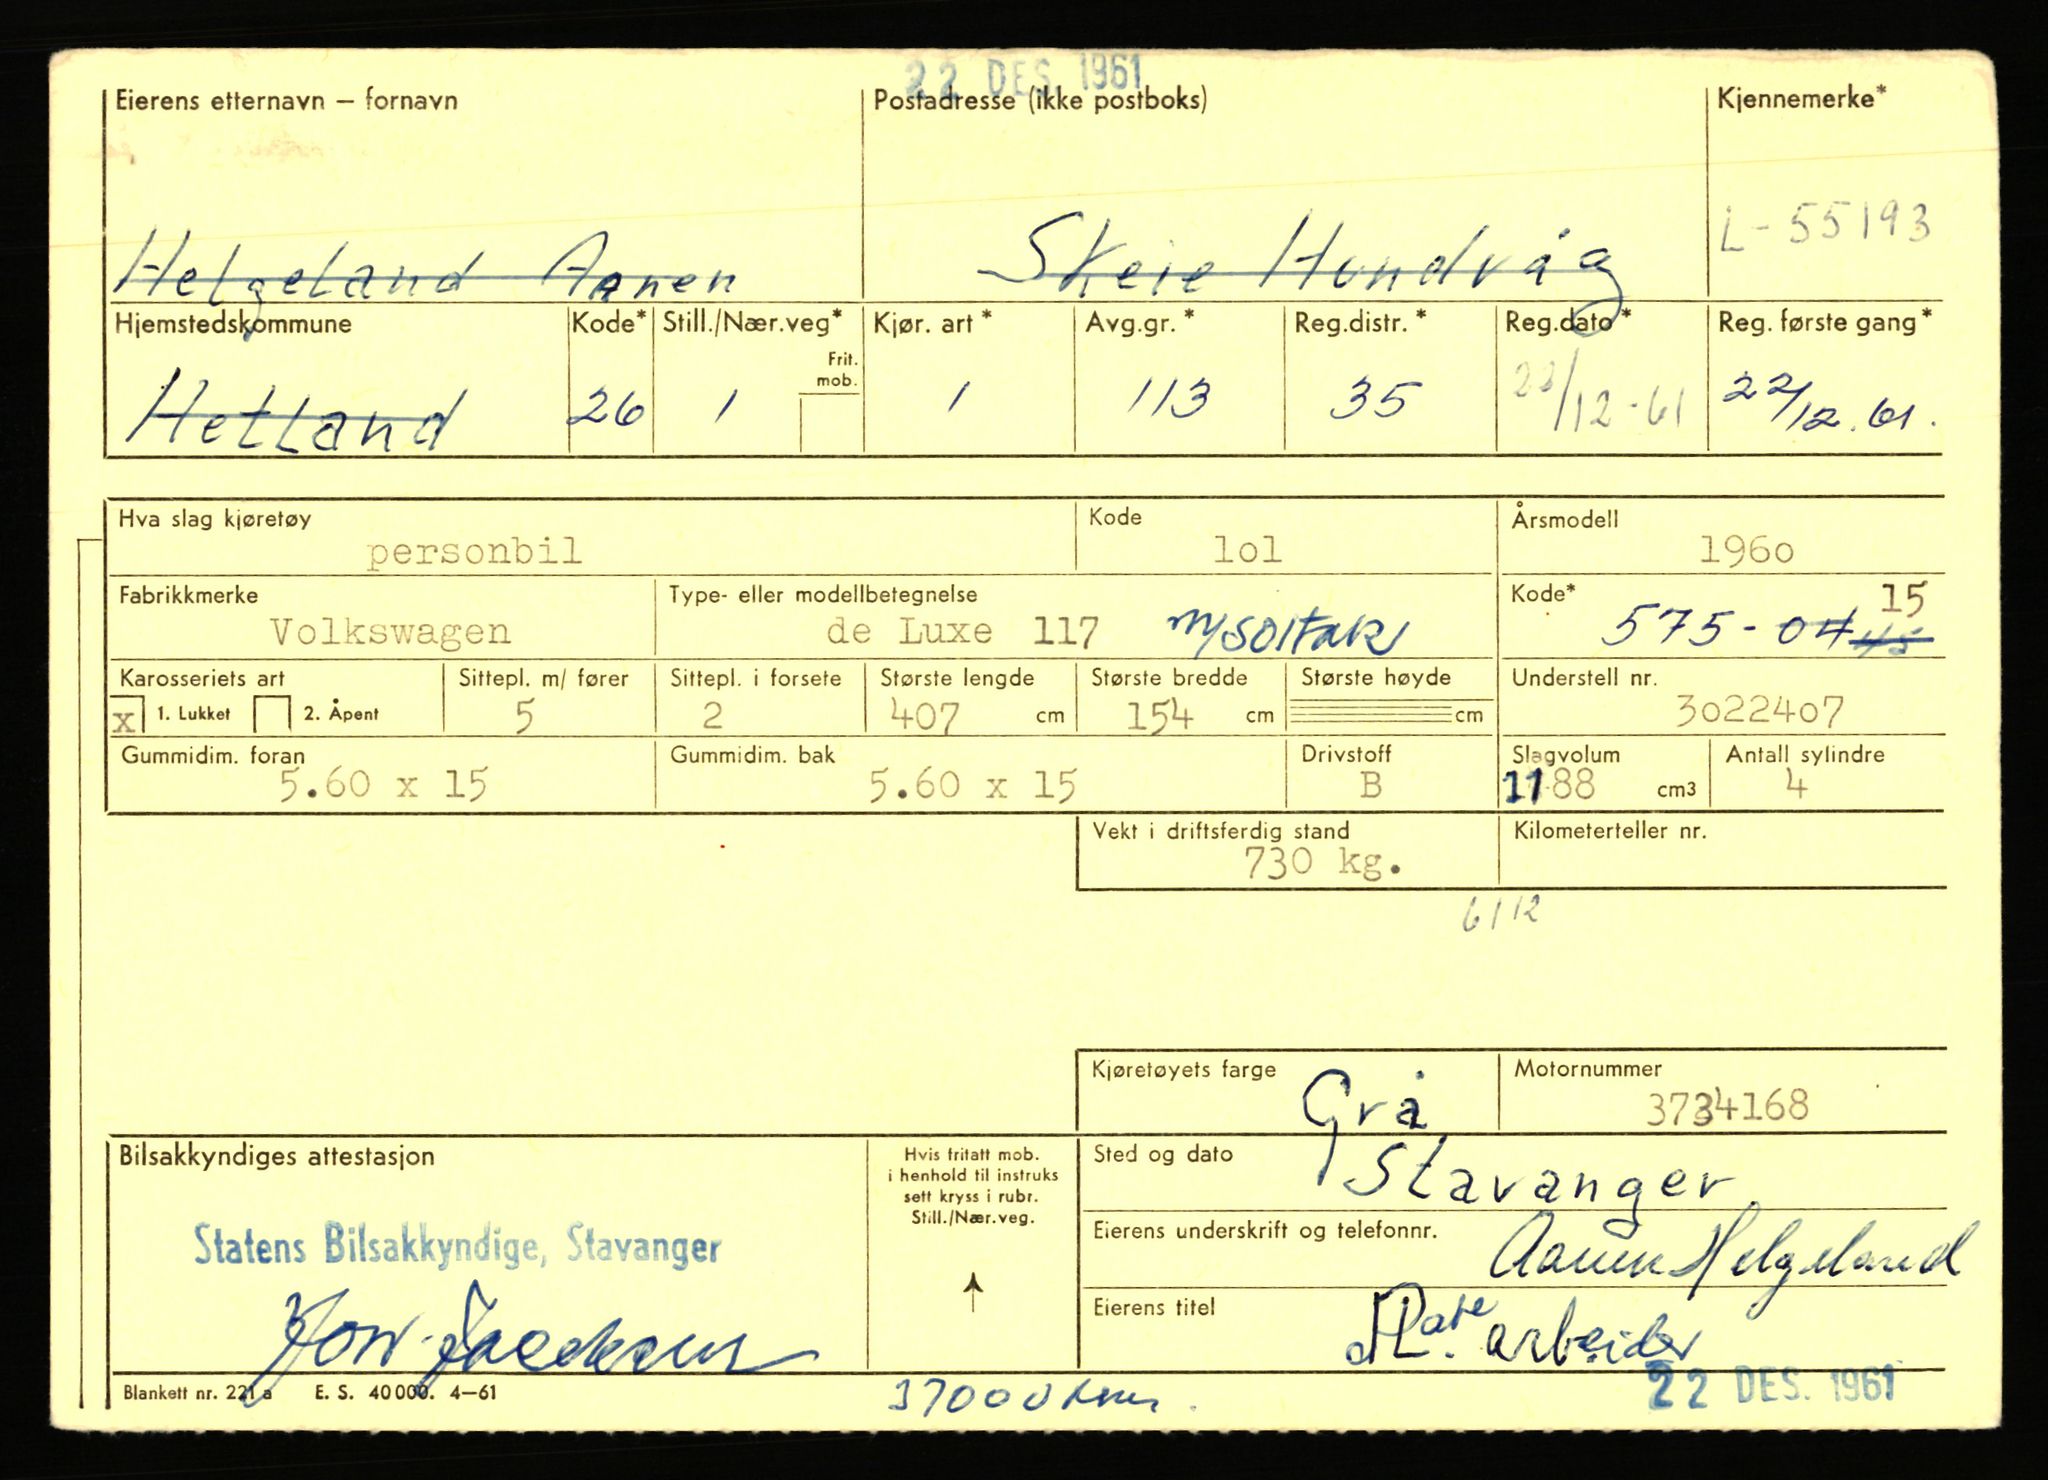 22 DES. 1961
Eierens etternavn – fornavn Postadresse (ikke postboks) Kjennemerke*
Helgeland Aanen Skeie Hundvåg L-55193
Hjemstedskommune Kode* Still./Nær.veg* Kjør. art* Avg.gr.* Reg.distr.* Reg.dato* Reg. første gang*
Frit.
mob.
Hetland 26 1 1 113 35 22/12-61 22/12.61.
Hva slag kjøretøy Kode Årsmodell
personbil 1o1 196o
Fabrikkmerke Type- eller modellbetegnelse Kode* 15
Volkswagen de Luxe 117 m/soltak 575-04 45
Karosseriets art Sittepl. m/ fører Sittepl. i forsete Største lengde Største bredde Største høyde Understell nr.
x 1. Lukket 2. Åpent 5 2 407 cm 154 cm cm 3022407
Gummidim. foran Gummidim. bak Drivstoff Slagvolum Antall sylindre
5.60 x 15 5.60 x 15 B 1188 cm3 4
Vekt i driftsferdig stand Kilometerteller nr.
730 kg.
6112
Kjøretøyets farge Motornummer
Grå 3734168
Bilsakkyndiges attestasjon Hvis fritatt mob.
i henhold til instruks
sett kryss i rubr.
Still./Nær.veg.
Sted og dato
Stavanger
Statens Bilsakkyndige, Stavanger
Eierens underskrift og telefonnr.
Aanen Helgeland
Eierens titel
Plate arbeider
22 DES. 1961
Blankett nr. 221 a E. S. 40000. 4–61
37000 km.